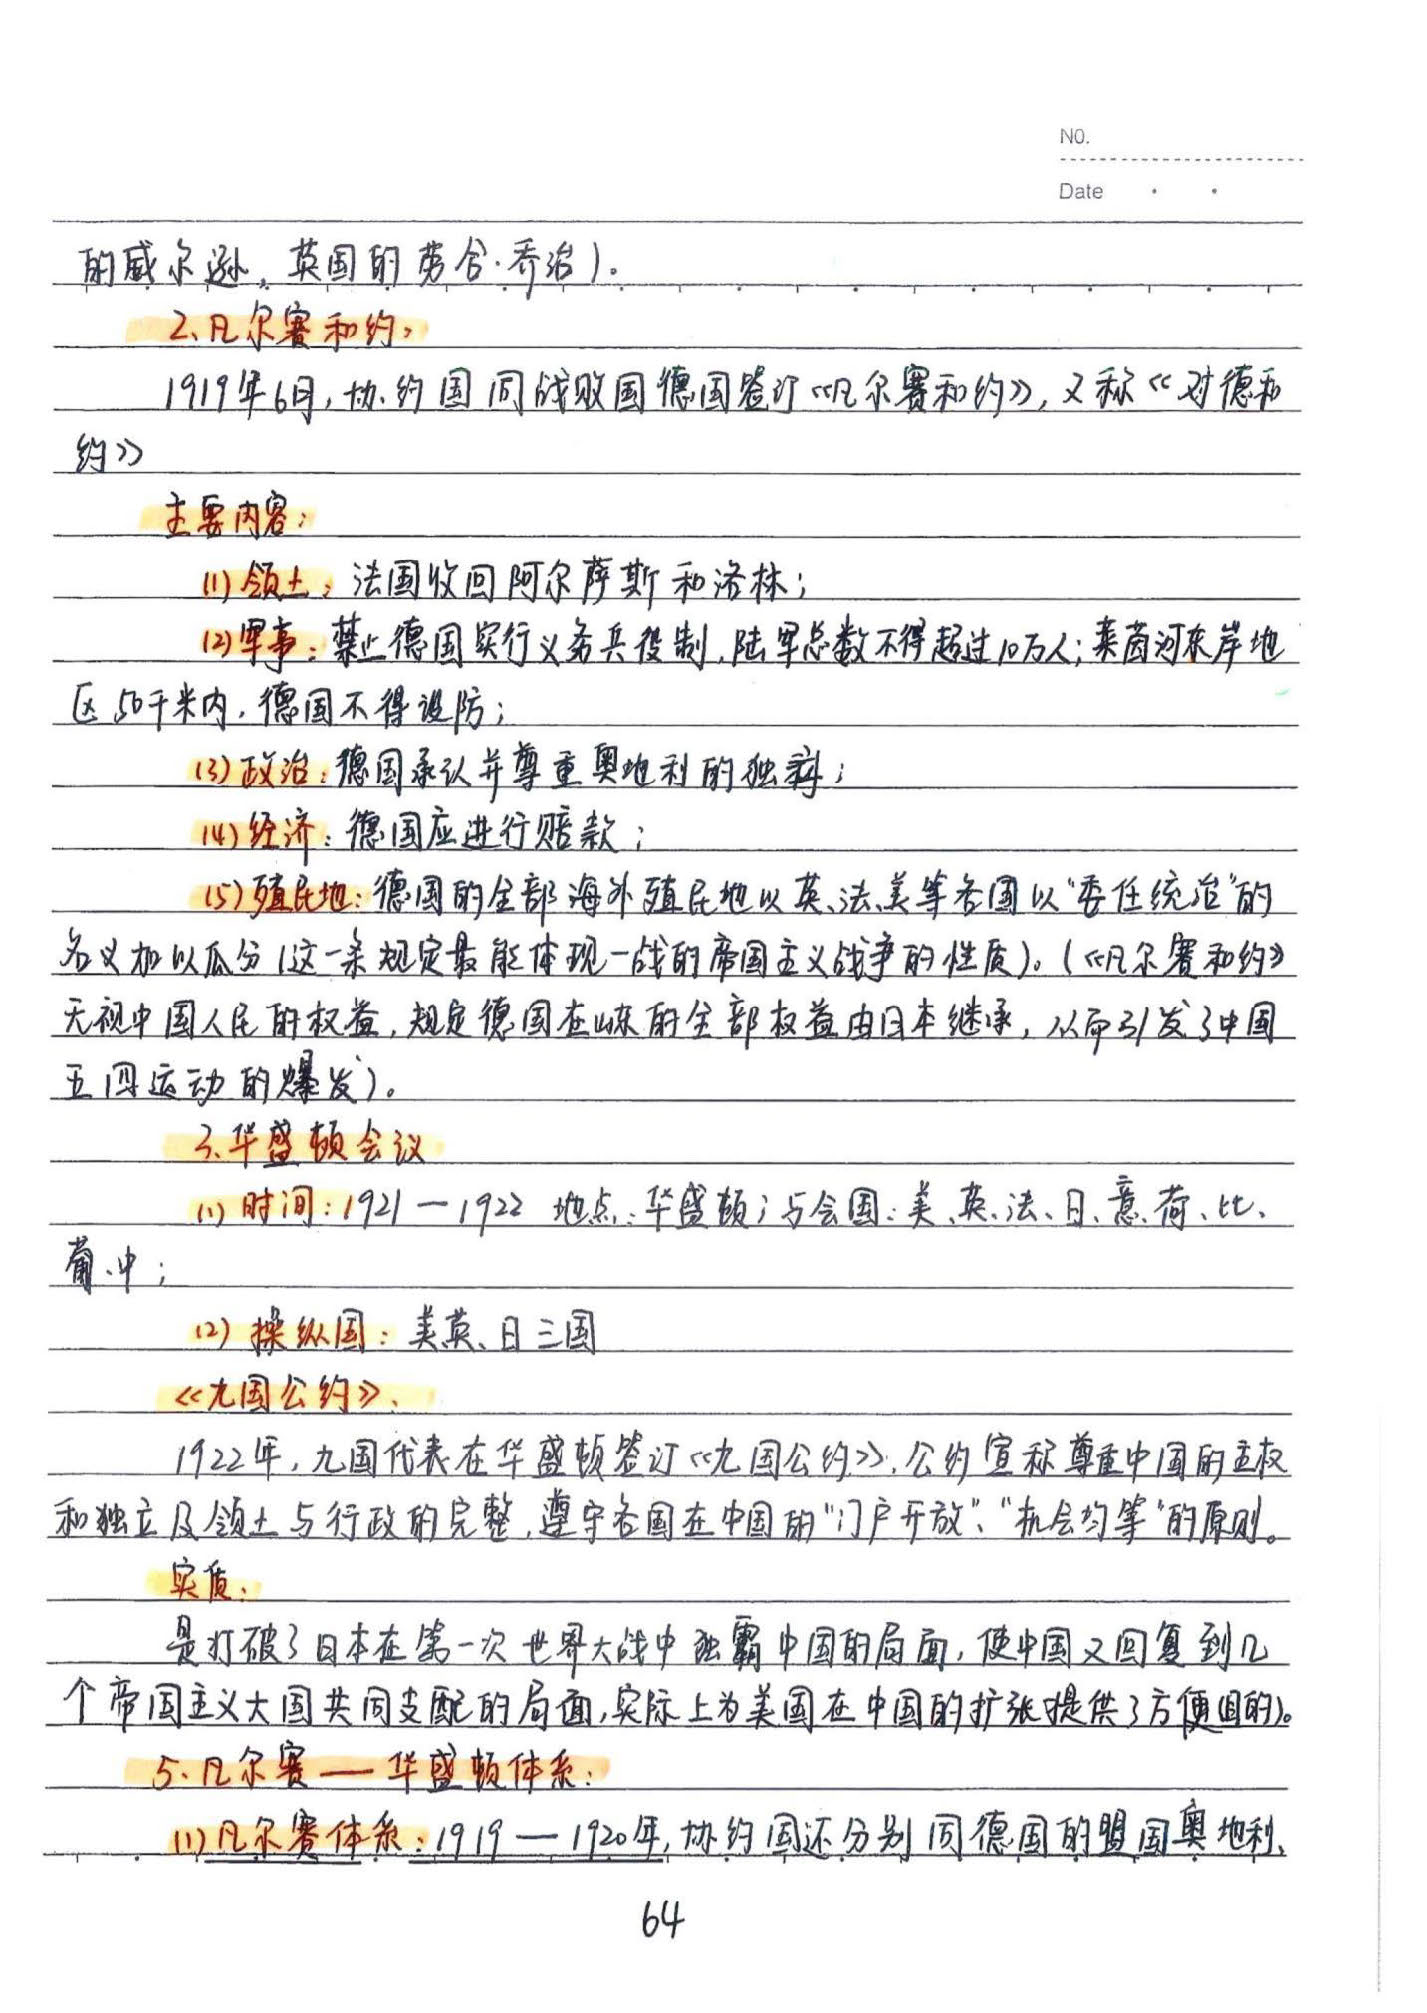 NO.
Date
的威尔逊,英国的劳合·乔治)。
2、凡尔赛和约:
1919年6月,协约国同战败国德国签订《凡尔赛和约》,又称《对德和
约》
主要内容:
(1)领土:法国收回阿尔萨斯和洛林;
(2)军事:禁止德国实行义务兵役制,陆军总数不得超过10万人;莱茵河东岸地
区50千米内,德国不得设防;
(3)政治:德国承认并尊重奥地利的独立;
(4)经济:德国应进行赔款;
(5)殖民地:德国的全部海外殖民地以英、法、美等各国以“委任统治”的
名义加以瓜分(这一条规定最能体现一战的帝国主义战争的性质)。(《凡尔赛和约》
无视中国人民的权益,规定德国在山东的全部权益由日本继承,从而引发了中国
五四运动的爆发)。
3、华盛顿会议
(1)时间:1921—1922 地点:华盛顿;与会国:美、英、法、日、意、荷、比、
葡、中;
(2)操纵国:美英、日三国
《九国公约》、
1922年,九国代表在华盛顿签订《九国公约》,公约宣称尊重中国的主权
和独立及领土与行政的完整,遵守各国在中国的“门户开放”、“机会均等”的原则。
实质:
是打破了日本在第一次世界大战中独霸中国的局面,使中国又回复到几
个帝国主义大国共同支配的局面,实际上为美国在中国的扩张提供了方便(目的)。
5、凡尔赛—华盛顿体系:
(1)凡尔赛体系:1919—1920年,协约国还分别同德国的盟国奥地利、
64